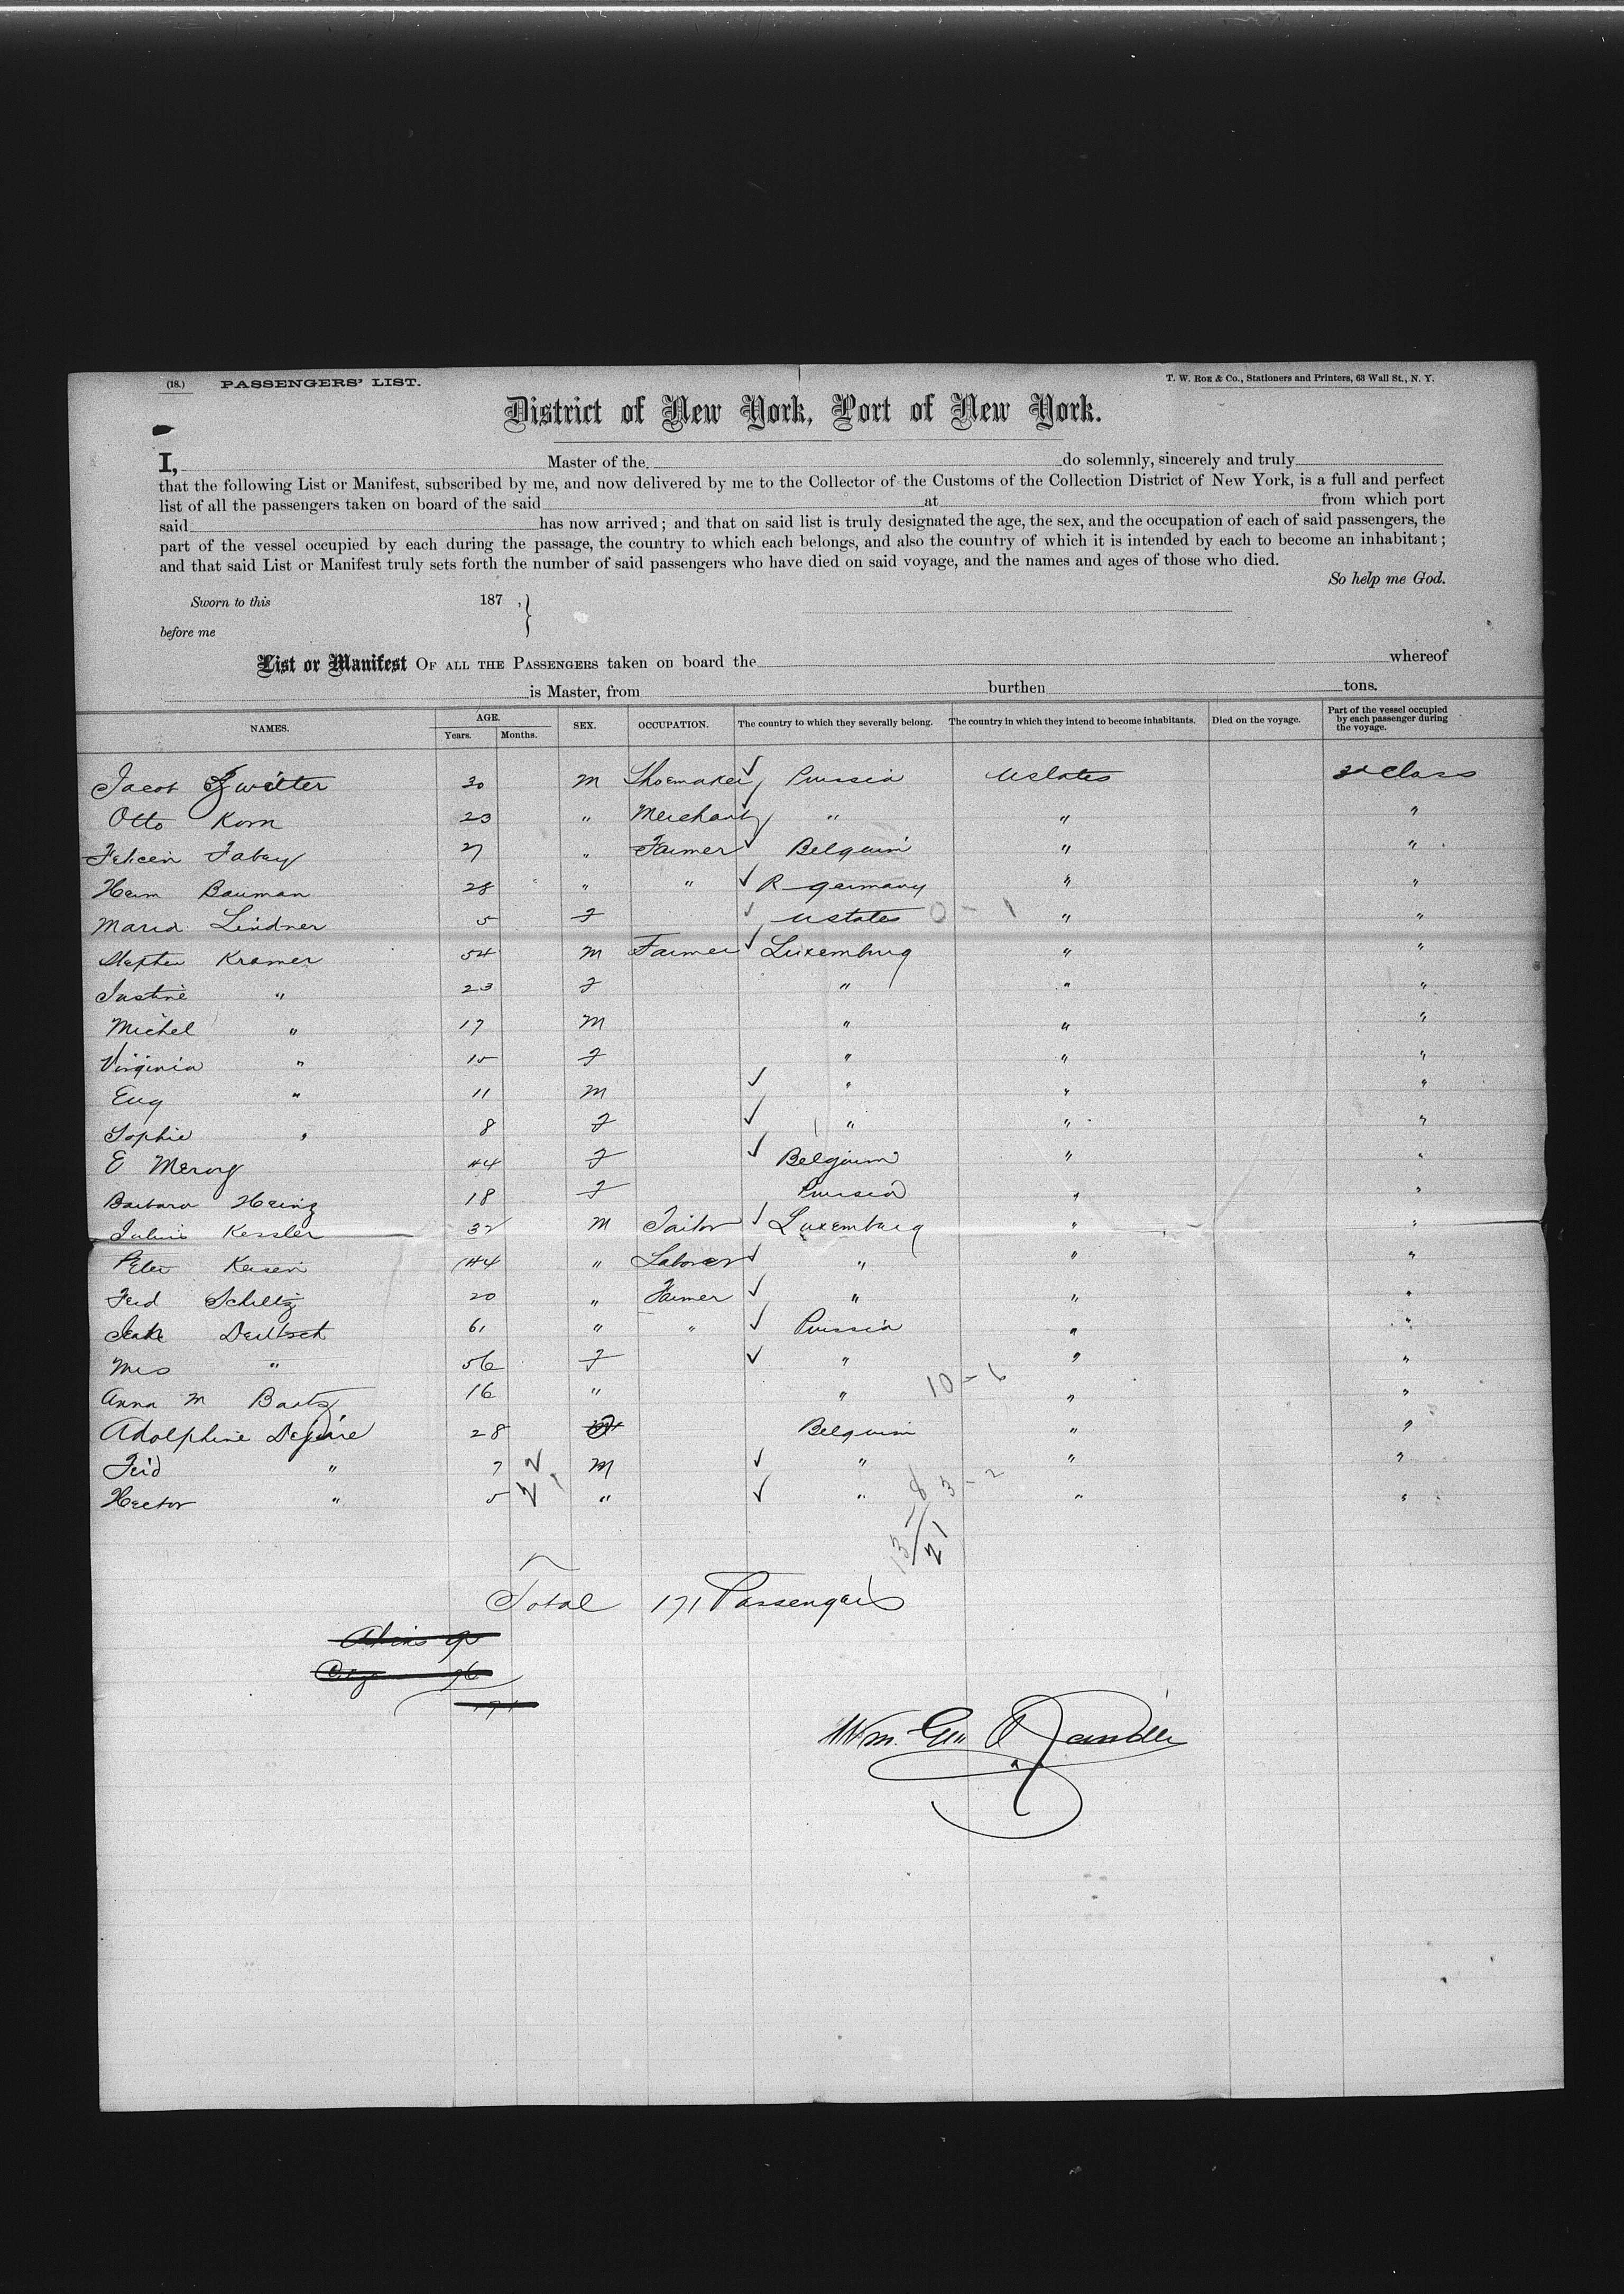 (18.) PASSENGERS' LIST. T. W. Roe & Co., Stationers and Printers, 63 Wall St., N. Y.
District of New York, Port of New York.
I, Master of the do solemnly, sincerely and truly
that the following List or Manifest, subscribed by me, and now delivered by me to the Collector of the Customs of the Collection District of New York, is a full and perfect
list of all the passengers taken on board of the said at from which port
said has now arrived; and that on said list is truly designated the age, the sex, and the occupation of each of said passengers, the
part of the vessel occupied by each during the passage, the country to which each belongs, and also the country of which it is intended by each to become an inhabitant;
and that said List or Manifest truly sets forth the number of said passengers who have died on said voyage, and the names and ages of those who died.
So help me God.
Sworn to this 187 ,}
before me
List or Manifest Of all the Passengers taken on board the whereof
is Master, from burthen tons.
NAMES. AGE. Years. Months. SEX. OCCUPATION. The country to which they severally belong. The country in which they intend to become inhabitants. Died on the voyage. Part of the vessel occupied by each passenger during the voyage.
Jacob 30 M Shoemaker ✓ Prussia Ustates 3d Class
Otto Korn 23 " Merchant ✓ " " "
Felicien Fabay 27 " Farmer ✓ Belguim " "
Herm Bauman 28 " " ✓ R Germany " "
Maria Lindner 5 F ✓ Ustates 0 - 1 " "
Stephen Kramer 54 M Farmer ✓ Luxemburg " "
Justine " 23 F " " "
Michel " 17 M " " "
Virginia " 15 F " " "
Eug " 11 M ✓ " " "
Sophie " 8 F ✓ " " "
E 44 F ✓ Belgium " "
Barbara Heinz 18 F Prussia " "
Julius Kessler 32 M Tailor ✓ Luxemburg " "
Peter 44 " Laborer ✓ " " "
Ferd Schiltz 20 " Farmer ✓ " " "
Deutsch 61 " " ✓ Prussia " "
Mrs " 56 F ✓ " " "
Anna M Bartz 16 " " 10 - 6 " "
Adolphine 28 F Belguim " "
Ferd " 7 M ✓ " " "
Hector " 5 " ✓ " 3 - 2 " "
21
Total 171 Passengers
Wm. G.